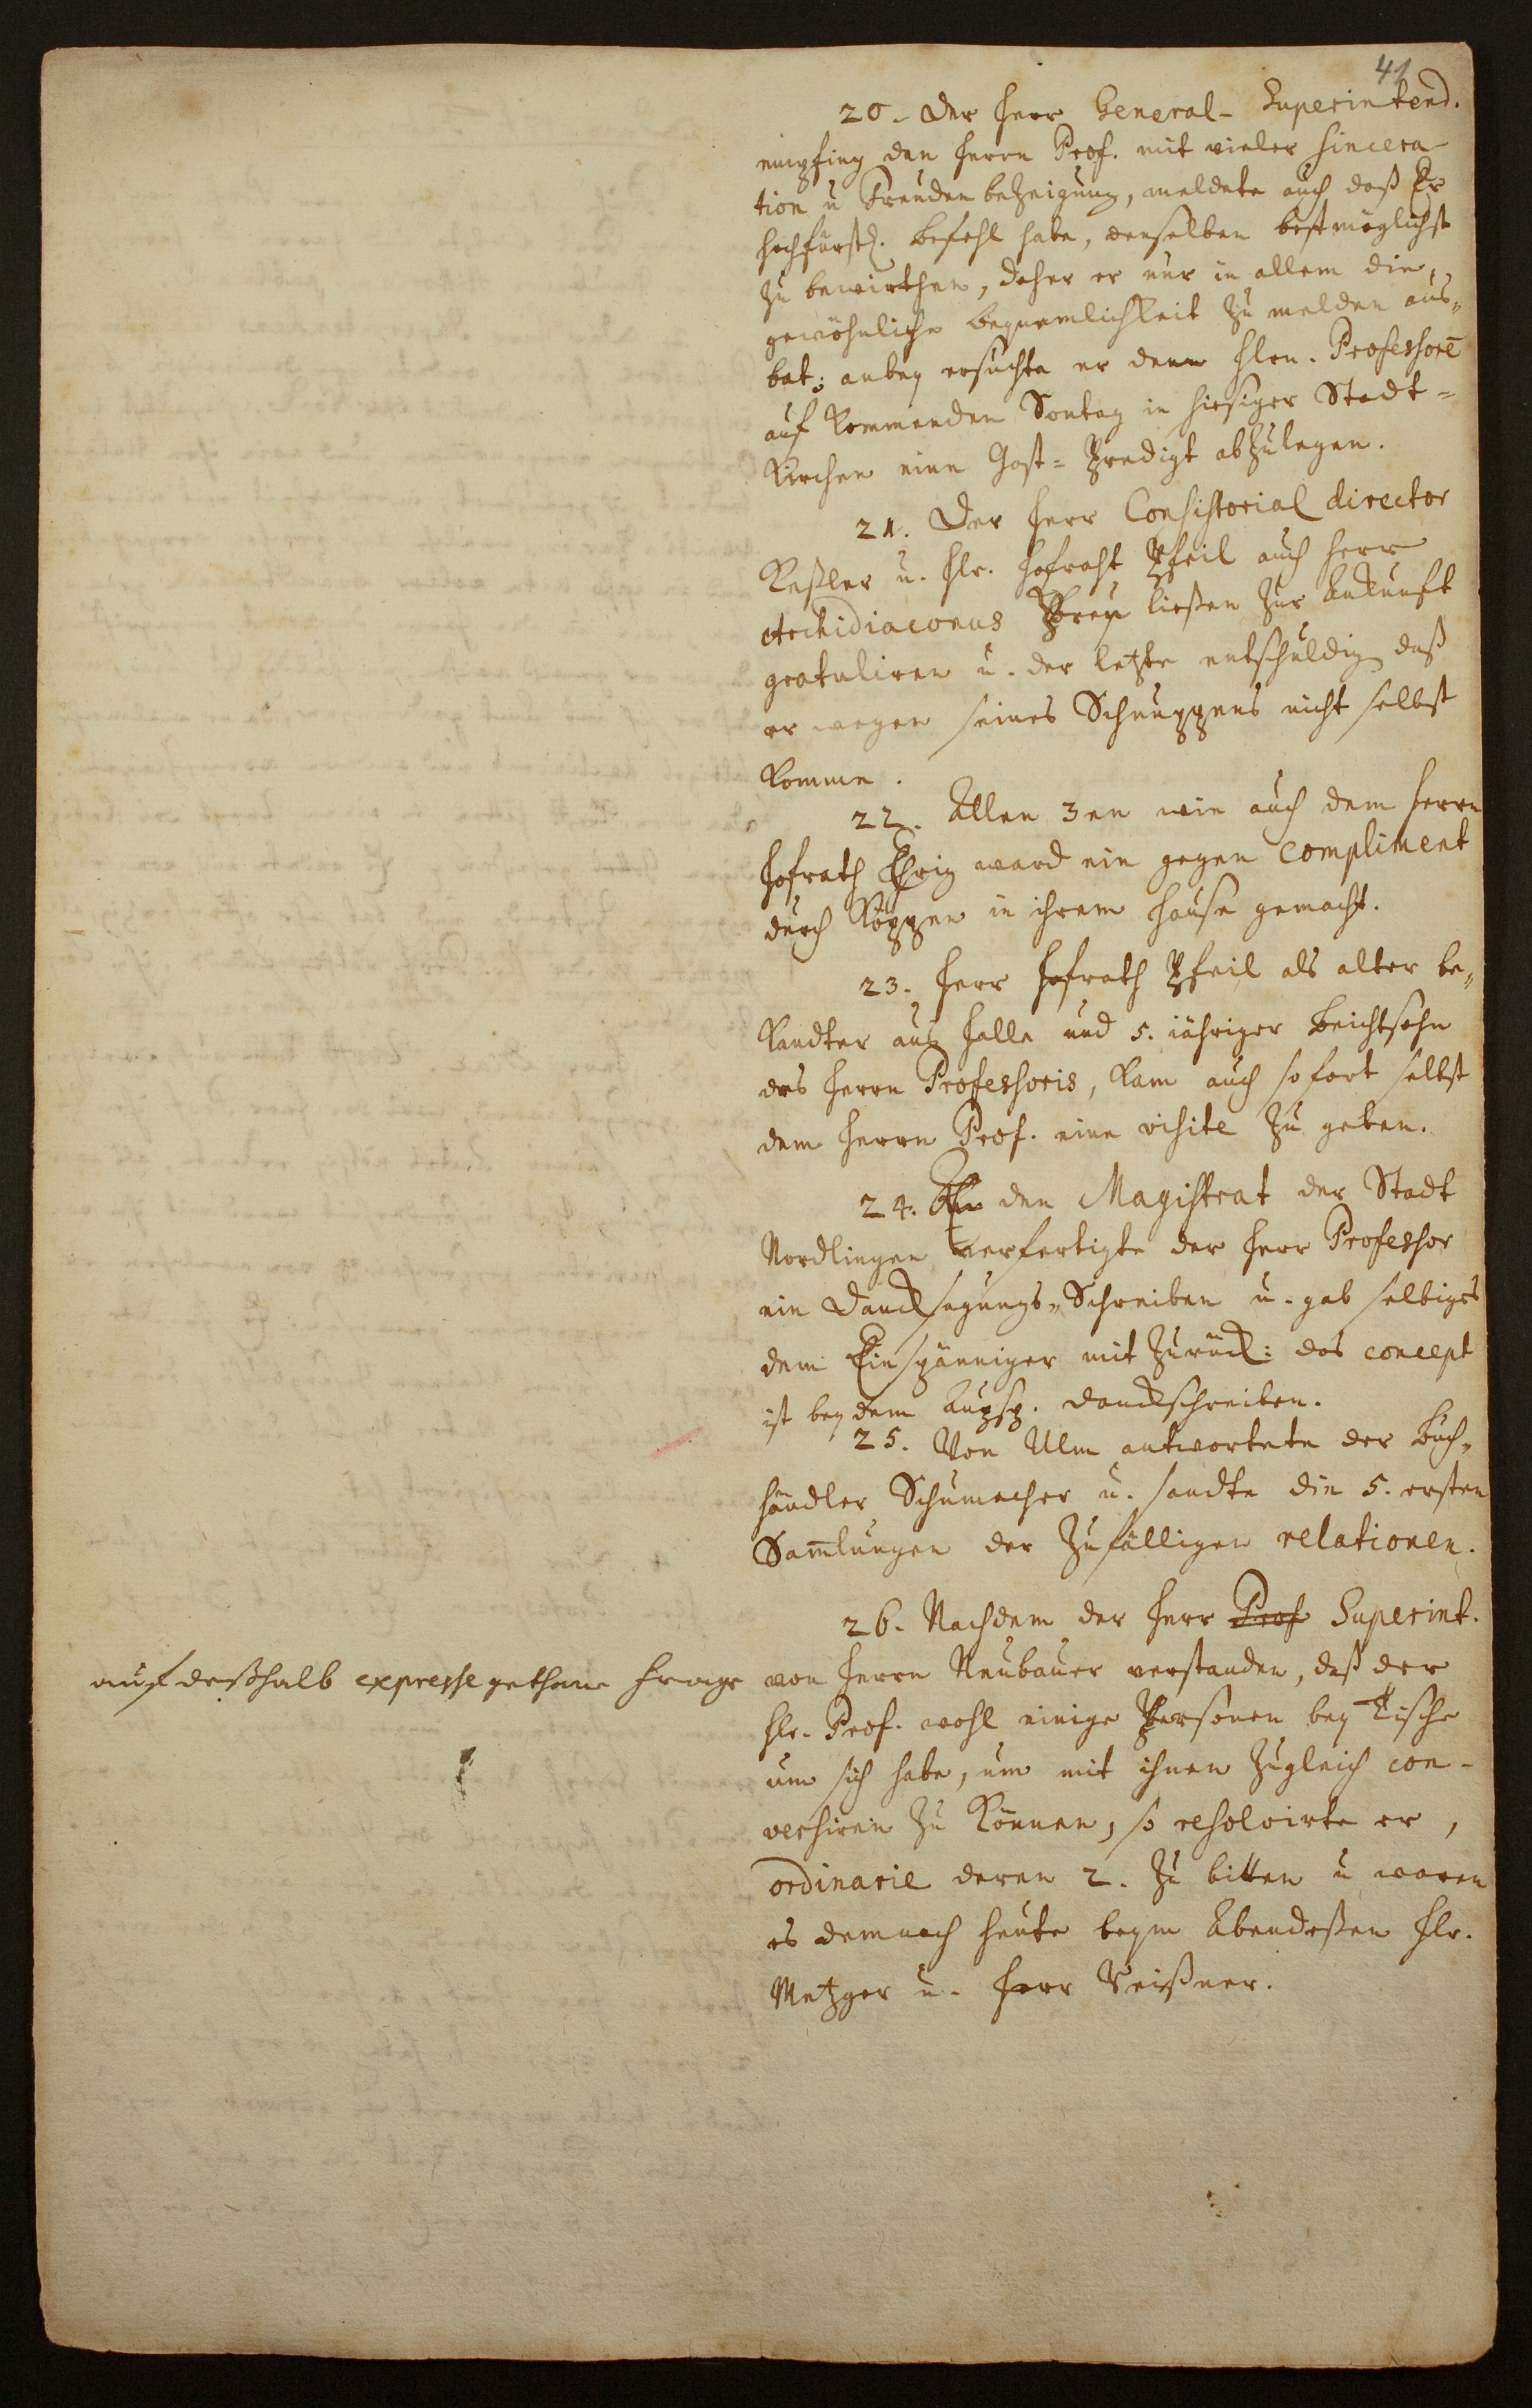 41
20. Der Herr General-Superintend.
empfing den Herrn Prof. mit vieler sincera-
tion u Freuden bezeigung, meldete auch daß Er
hochfürstl. Befehl habe, denselben bestmöglichst
zu bewirthen, daher er nur in allem die
gewöhnliche bequemlichkeit zu melden aus„
bat; anbey ersuchte er denn HErn. Professorē
auf kommenden Sontag in hiesiger Stadt=
Kirchen eine Gast=Predigt abzulegen.
21. Der Herr Consistorial director
Keßler u. HEr. Hofraht Pfeil auch Herr
Archidiaconus Preu ließen zur Ankunft
gratuliren u. der letzte entschuldig daß
er wegen seines Schnuppens nicht selbst
komme.
22. Allen 3en wie auch dem Herrn
Hofrath ward ein gegen Compliment
durch Köppen in ihrem Hause gemacht.
23. Herr Hofrath Pfeil als alter be„
kandter aus Halle und 5. jähriger Beichtsohn
des Herrn Professoris, kam auch sofort selbst
dem Herrn Prof. eine visite zu geben.
24. An den Magistrat der Stadt
Nordlingen verfertigte der Herr Professor
ein Dancksagungs„Schreiben u. gab selbiges
dem Einspänniger mit zurück: das concept
ist bey dem Augsp. danckschreiben.
25. Von Ulm antwortete der Buch„
händler Schumacher u. sandte die 5. ersten
Sam̅lungen der zufälligen relationen.
26. Nachdem der Herr Prof Superint.
auf deßhalb expresse gethane Frage
von Herrn Neubauer verstanden, daß der
HEr. Prof. wohl einige Personen bey Tische
um sich habe, um mit ihnen zugleich con-
versiren zu können, so resolvirte er,
ordinarie deren 2. zu bitten u waren
es demnach heute beym Abendeßen HEr.
Metzger u. Herr Meißner.